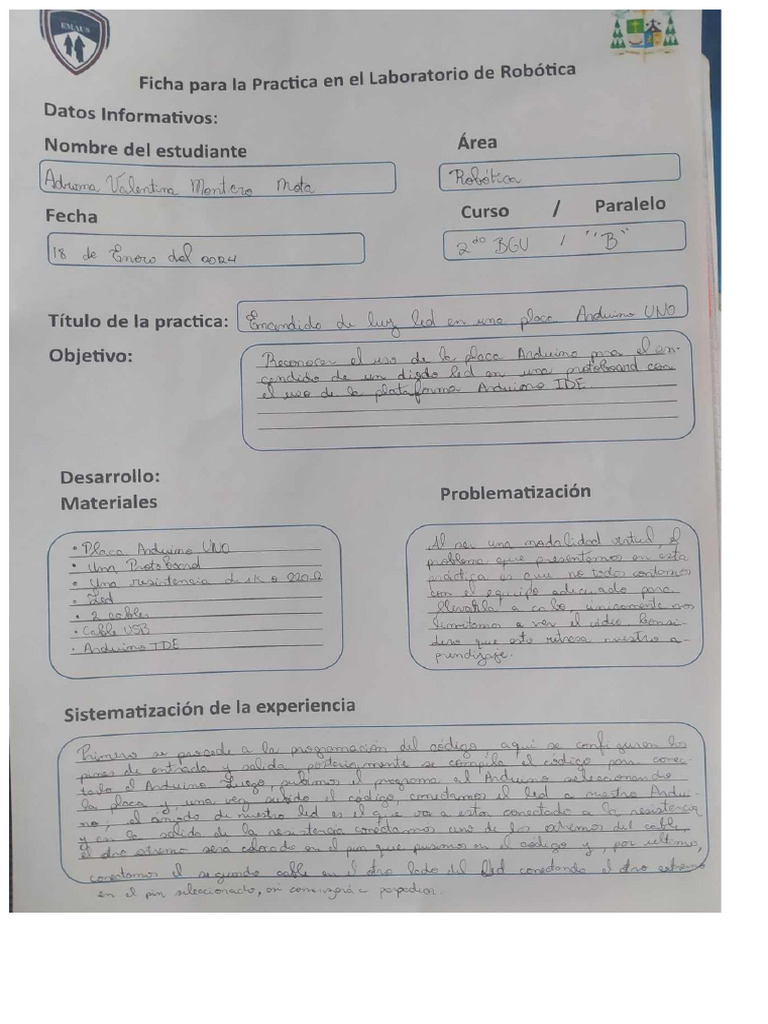 EMAUS
Ficha para la Practica en el Laboratorio de Robótica
Datos Informativos:
Nombre del estudiante
Área
Adriana Valentina Montero Mota
Robótica
Fecha
Curso / Paralelo
18 de Enero del 2024
2do BGU / "B"
Título de la practica:
Encendido de luz led en una placa Arduino UNO
Objetivo:
Reconocer el uso de la placa Arduino para el en-
cendido de un diodo led en una protoboard con
el uso de la plataforma Arduino IDE.
Desarrollo:
Materiales
Problematización
• Placa Arduino UNO
• Una Protoboard
• Una resistencia de 1K o 220Ω
• Led
• 2 cables
• Cable USB
• Arduino IDE
Al ser una modalidad virtual, el
problema que presentamos en esta
práctica es que no todos contamos
con el equipo adecuado para
llevarla a cabo, únicamente nos
limitamos a ver el video. Consi-
dero que esto retrasa nuestro a-
prendizaje.
Sistematización de la experiencia
Primero se procede a la programación del código, aquí se configuran los
pines de entrada y salida posteriormente se compila el código para conec-
tarlo al Arduino. Luego, subimos el programa al Arduino seleccionando
la placa y, una vez subido el código, conectamos el led a nuestro Ardui-
no; el ánodo de nuestro led es el que va a estar conectado a la resistencia
y en la salida de la resistencia conectamos uno de los extremos del cable,
el otro extremo será colocado en el pin que pusimos en el código y, por último,
conectamos el segundo cable en el otro lado del led conectando el otro extremo
en el pin seleccionado, así comenzará a parpadear.